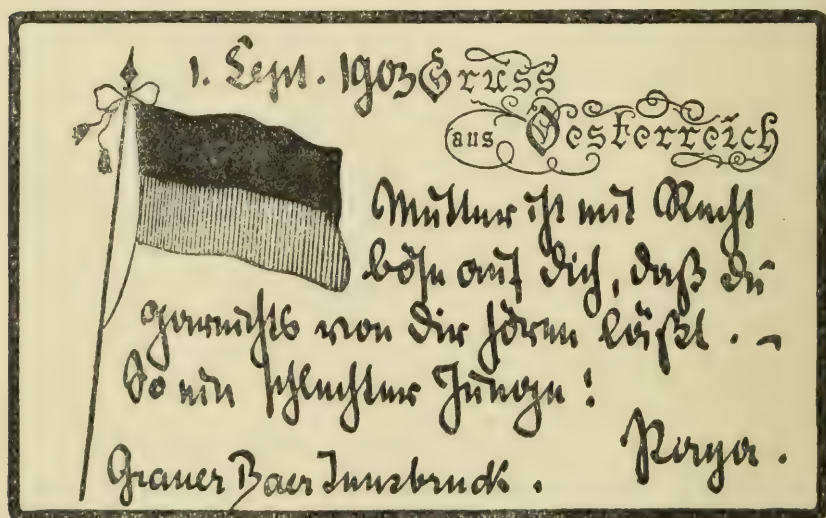 1. Sept. 1903 Gruss
aus Oesterreich
Mutter ist mit Recht
böse auf dich, daß du
garnichts von dir hören läßt. -
So ein schlechter Junge!
Papa.
Grauer Baer Innsbruck.